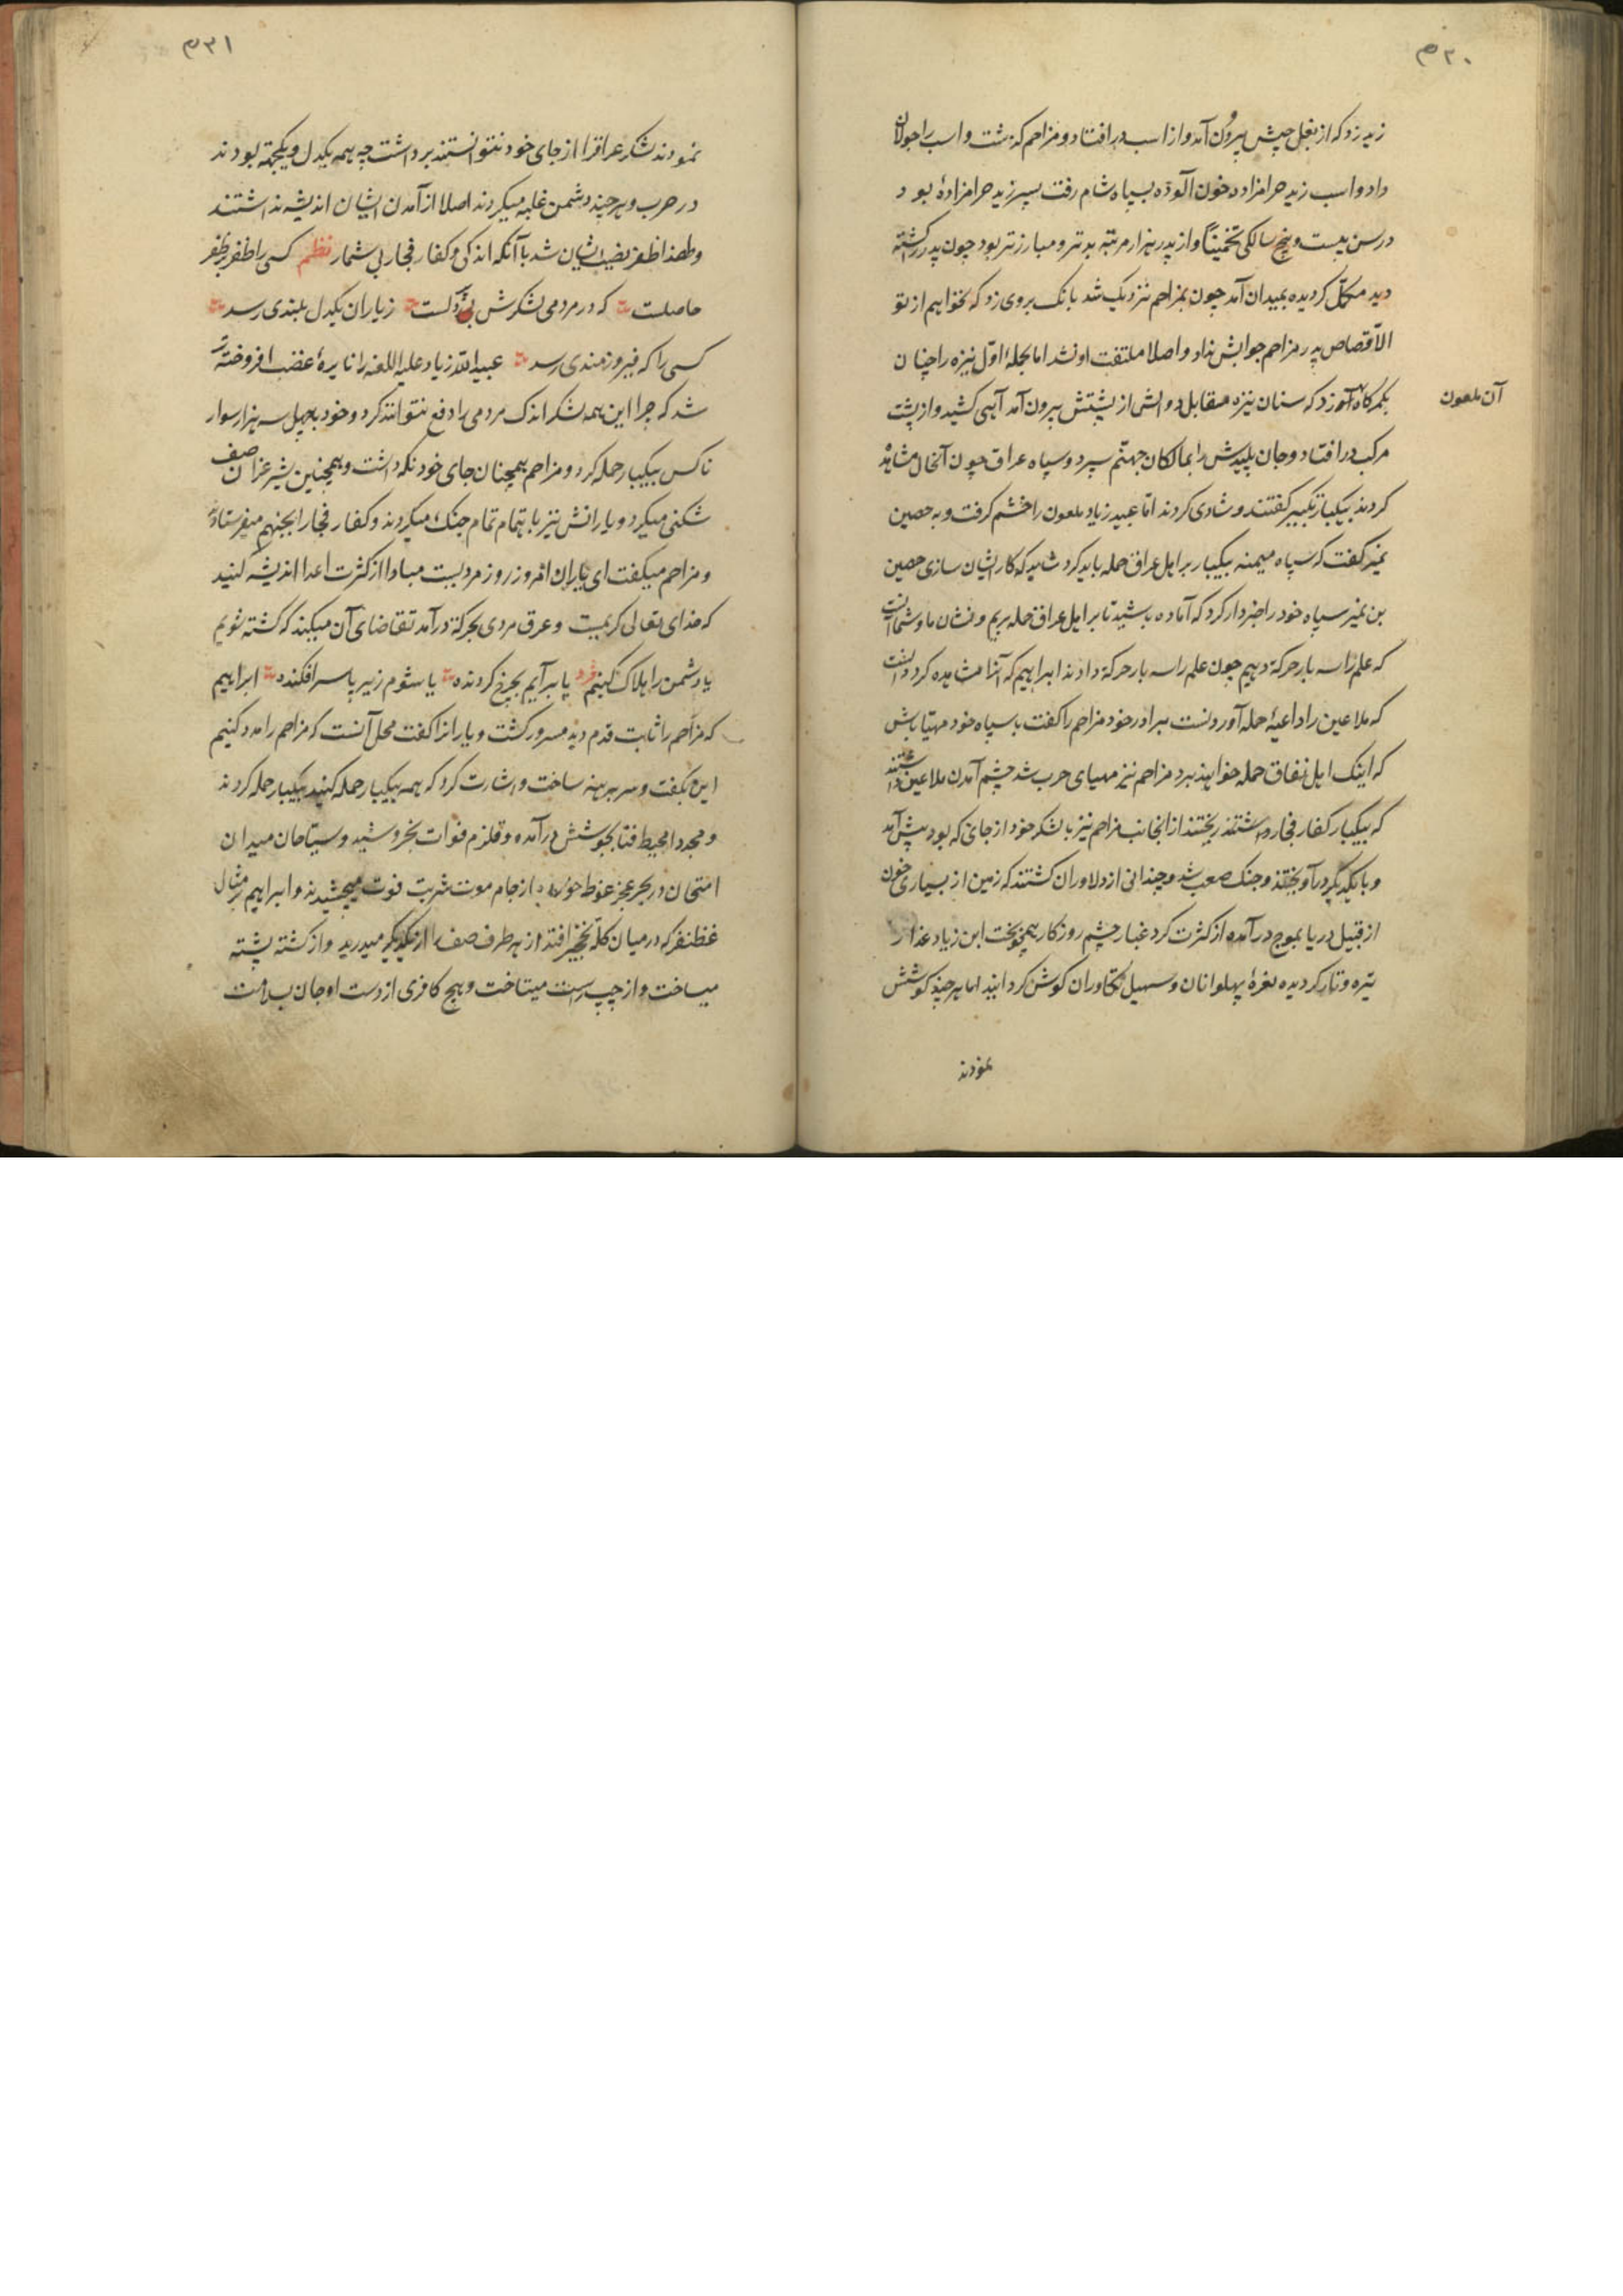 ۳۰م
زید زد که از بغل چپش بیرون آمد و از اسب در افتاد و مزاحم که بذشت و اسب را جولان
داد و اسب زید حرامزاده خون آلوده بسپاه شام رفت پسر زید حرامزادهٔ بود
در سن بیست و پنج سالکی تخمیناً و از پدر هزار مرتبه بدتر و مبارزتر بود چون پدر را کشته
دید مکمّل کردیده بمیدان آمد چون بمزاحم نزدیک شد بانک بر وی زد که نخواهیم از تو
الاّ قصاص پدر مزاحم جوابش نداد و اصلا ملتفت او نشد اما بحملهٔ اوّل نیزه را چنان
بکمرکاه زد که سنان نیزه مقابل دو الش از پشتش بیرون آمد آهی کشید و از پشت
آن ملعون
مرکب در افتاد و جان پلیدش را بمالکان جهنّم سپرد و سپاه عراق چون آنحال مشاهده
کردند بیکبار تکبیر کفتند و شادی کردند امّا عبید زیاد ملعون را خشم کرفت و به حصین
نمیر کفت که سپاه میمنه بیکبار بر اهل عراق حمله باید کرد شاید که کار ایشان سازی حصین
بن نمیر سپاه خود را خبردار کرد که آماده باشید تا بر اهل عراق حمله بریم و نشان ما و شما آنست
که علم را سه بار حرکة دهیم چون علم را سه بار حرکة دادند ابراهیم که آنرا مشاهده کرد دانست
که ملاعین را داعیهٔ حمله آوردنست ببرادر خود مزاحم را کفت با سپاه خود مهیّا باش
که اینک اهل نفاق حمله خواهند برد مزاحم نیز مهیای حرب شد چشم آمدن ملاعین داشتند
که بیکبار کفار فجار ریختند از انجانب مزاحم نیز با لشکر خود از جای که بود پیش آمد
و با یکدیکر در آویختند و جنک صعب شد و چندانی از دلاوران کشتند که زمین از بسیاری خون
از قبیل دریا بموج در آمده از کثرت کرد غبار چشم روزکار همچو بخت ابن زیاد غدار
تیره و تار کردیده نعرهٔ پهلوانان و سهیل تکاوران کوش کردانید اما هر چند کوشش
نمودند
۳۱م
نمودند لشکر عراقرا از جای خود نتوانستند برداشت چه همه یکدل و یکجهة بودند
در حرب و هر چند دشمن غلبه میکردند اصلا از آمدن ایشان اندیشه نداشتند
و لهذا ظفر نصیب ایشان شد با آنکه اندکی و کفار فجار بی شمار نظم کسی را ظفر بر ظفر
حاصلست که در مردمی لشکرش یکدلست ز یاران یکدل بلندی رسد
کسی را که فیروزمندی رسد عبید الله زیاد علیه اللعنه را نایرهٔ غضب افروخته تر
شد که چرا این همه لشکر اندک مردمی را دفع نتوانند کرد و خود با چهل سه هزار سوار
ناکس بیکبار حمله کرد و مزاحم همچنان جای خود نکه داشت و همچنین شیر غرّان صف
شکنی میکرد و یارانش نیز باهتمام تمام جنک میکردند و کفار فجار را بجهنّم میفرستادند
و مزاحم میکفت ای یاران امروز روز مردیست مبادا از کثرت اعدا اندیشه کنید
که خدای تعالی کریمست و عرق مردی بحرکة در آمد تقاضای آن میکند که کشته شویم
یا دشمن را هلاک کنیم فرد یا بر آیم بچرخ کردنده یا شوم زیر پا سر افکنده ابراهیم
که مزاحم را ثابت قدم دید مسرور کشت و یارانرا کفت محل آنست که مزاحم را مدد کنیم
این بکفت و سر برهنه ساخت و اشارت کرد که همه بیکبار حمله کنید بیکبار حمله کردند
و مجددا محیط فنا بجوشش در آمده و قلزم فوات بخروشید و سیّاحان میدان
امتحان در بحر عجز غوطه خورده از جام موت شربت فوت میچشیدند و ابراهیم بر مثال
غظنفر که در میان کلّه نخچیر افتد از هر طرف صف را از یکدیکر میدرید و از کشته پشته
میساخت و از چپ راست میتاخت و هیچ کافری از دست او جان بسلامت